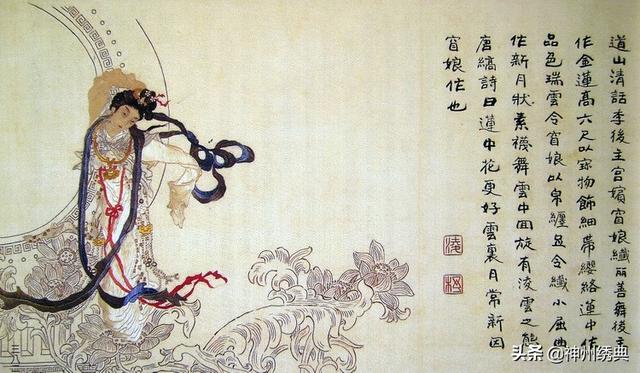 道山清話李後主宮嬪窅娘纖丽善舞後主
作金蓮高六尺以寳物飾細帶纓絡蓮中作
品色瑞雲令窅娘以帛纏足令纖小屈曲
作新月狀素襪舞雲中囬旋有淩雲之態
唐縞詩曰蓮中花更好雲裏月常新因
窅娘作也
头条 @神州绣典